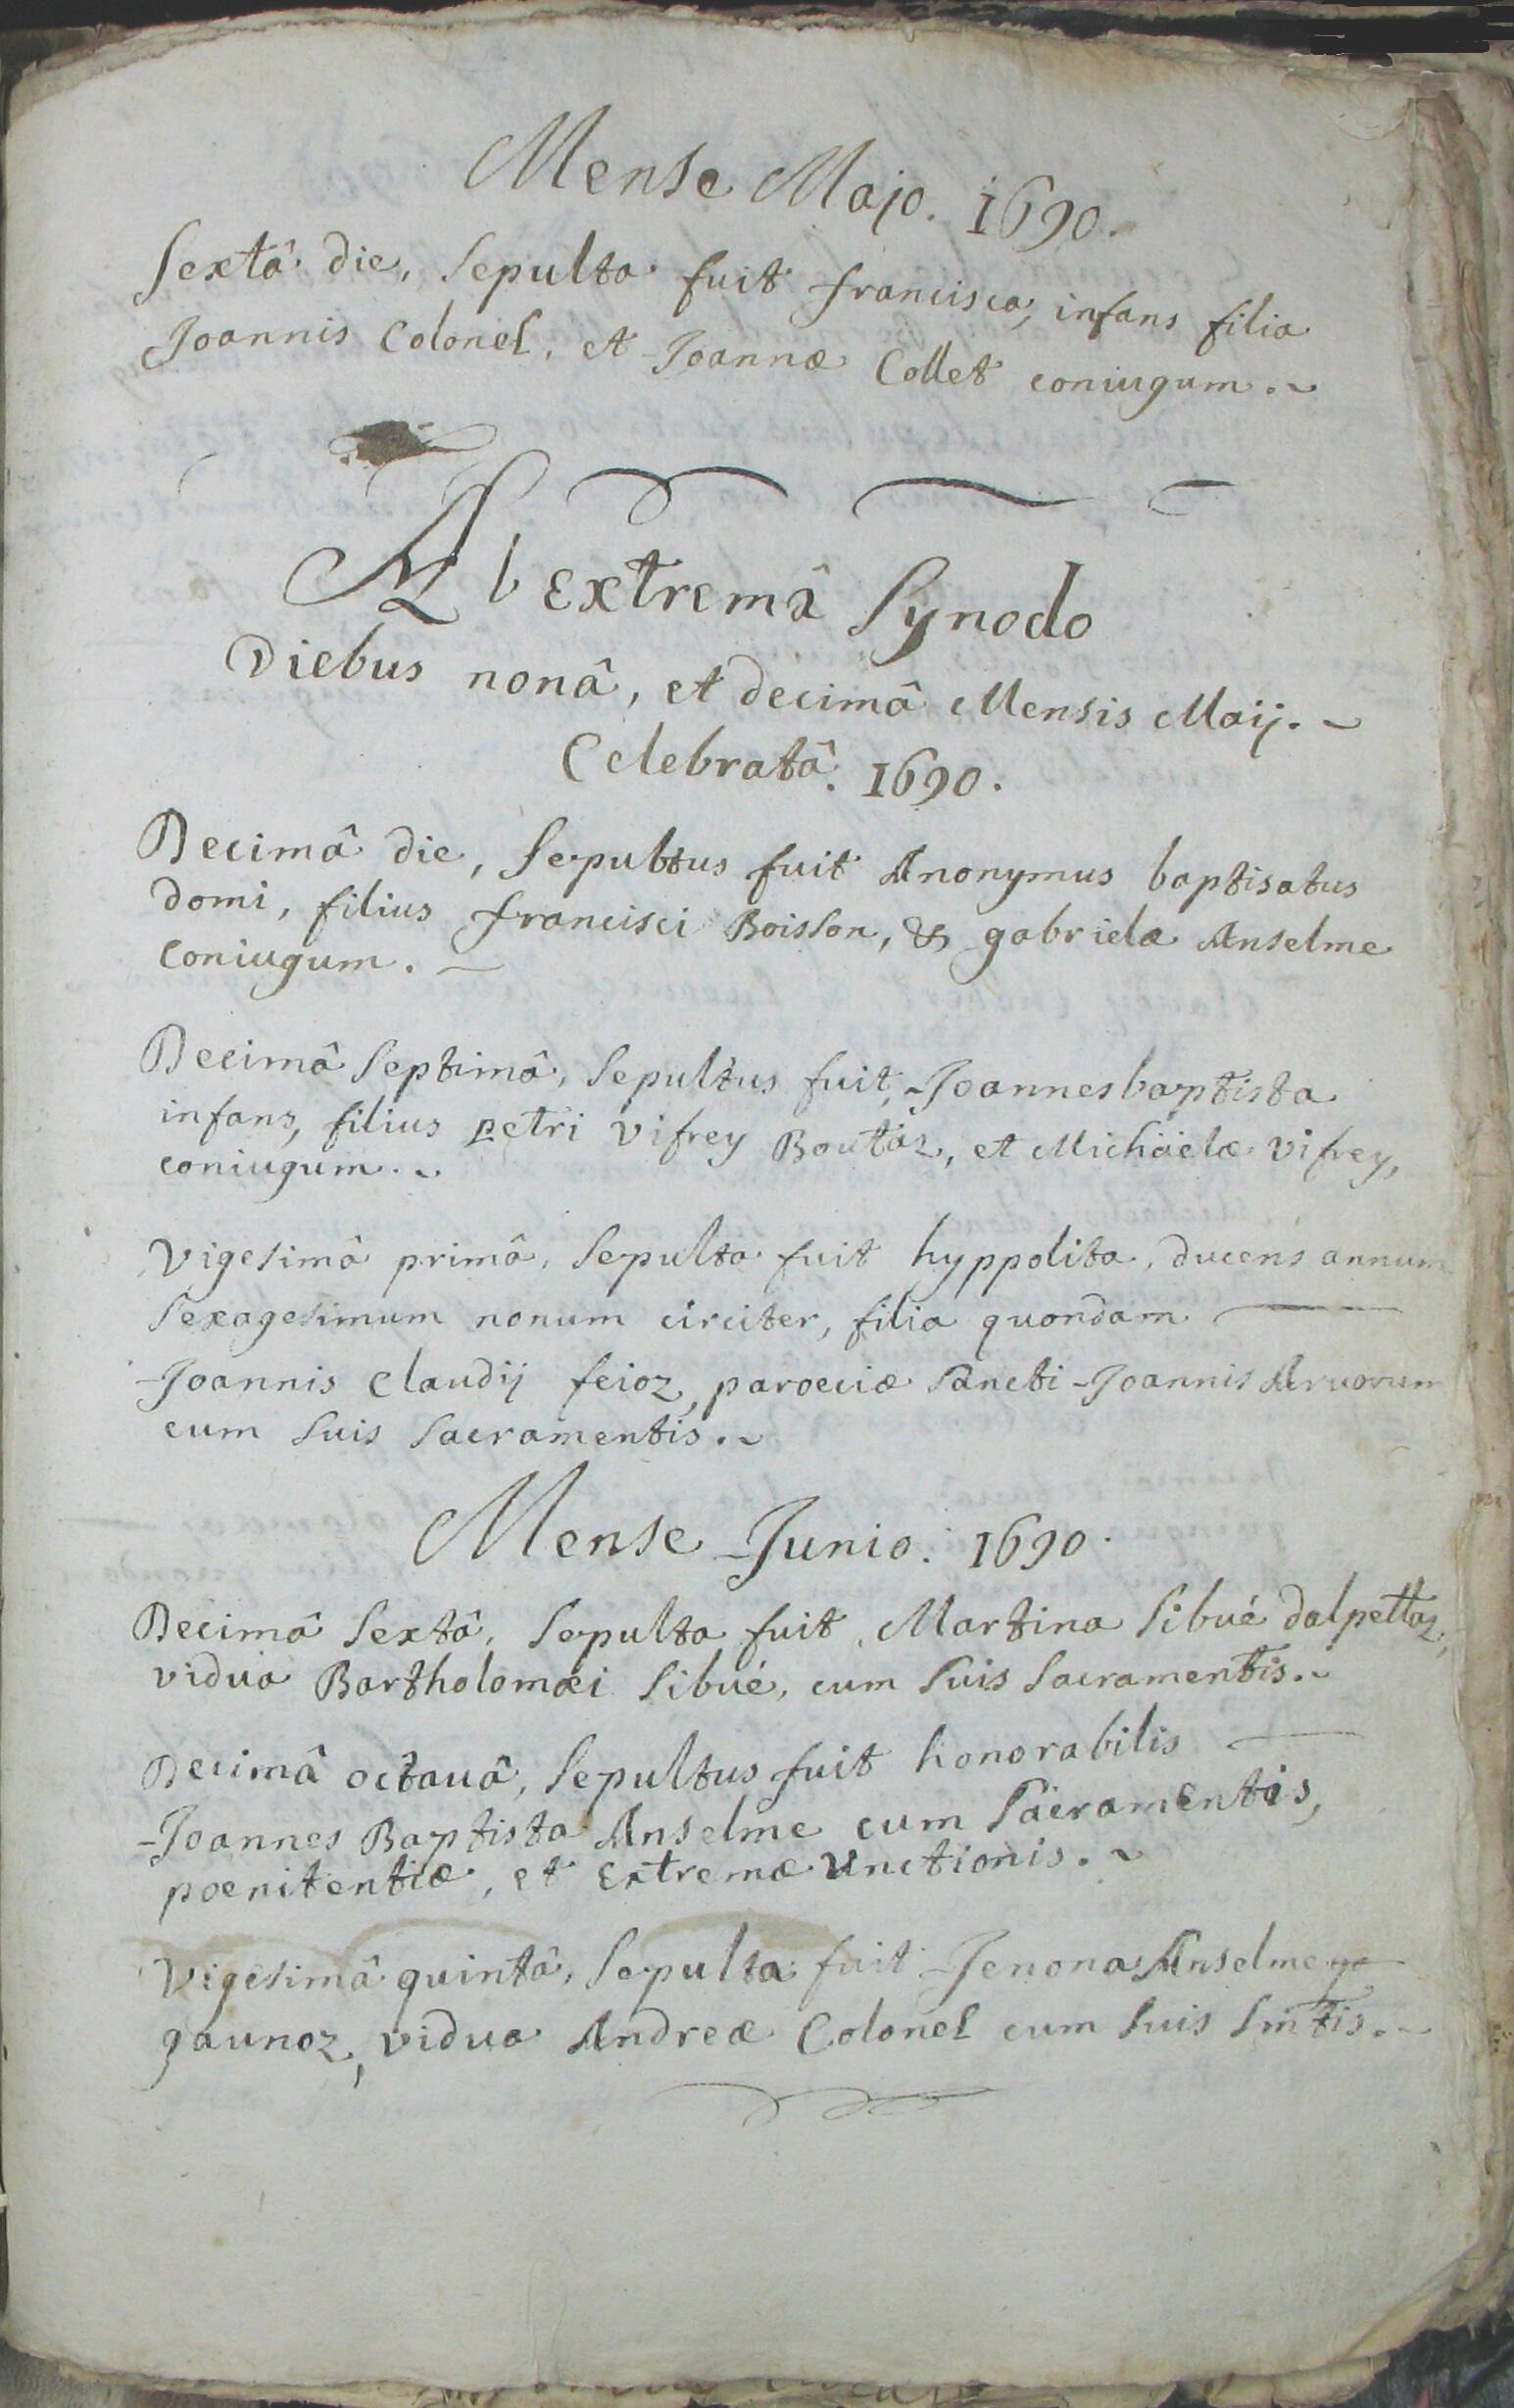 Mense Majo. 1690.
Sextâ die, Sepulta fuit francisca, infans filia
Joannis Colonel, et Joannæ Collet coniugum.
Ab Extremâ Synodo
Diebus nonâ, et decimâ Mensis Maij.
Celebratâ. 1690.
Decimâ die, Sepultus fuit Anonymus baptisatus
domi, filius francisci Boisson, & gabrielæ Anselme
Coniugum.
Decimâ Septimâ, Sepultus fuit, Joannesbaptista
infans, filius petri vifrey Boutaz, et Michäelæ vifrey,
coniugum.
Vigesimâ primâ, Sepulta fuit hyppolita, ducens annum
Sexagesimum nonum circiter, filia quondam
Joannis Claudij feioz, paroeciæ Sancti Joannis Aruorum
cum Suis Sacramentis.
Mense Junio. 1690.
Decimâ Sextâ, Sepulta fuit Martina Sibué dalpettaz,
vidua Bartholomæi Sibué, cum Suis Sacramentis.
Decimâ octauâ, Sepultus fuit honorabilis
Joannes Baptista Anselme cum Sacramentis,
poenitentiæ, et Extremæ Unctionis.
Vigesimâ quintâ, Sepulta fuit Jenona Anselme
gaunoz, vidua Andreæ Colonel cum Suis Smtis.